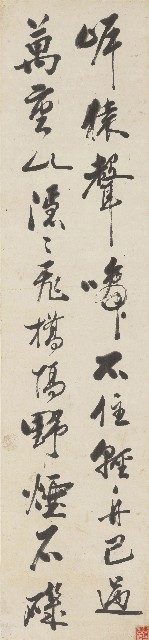 岸猿聲啼不住輕舟已過
萬重山隱〻飛橋隔野煙石磯